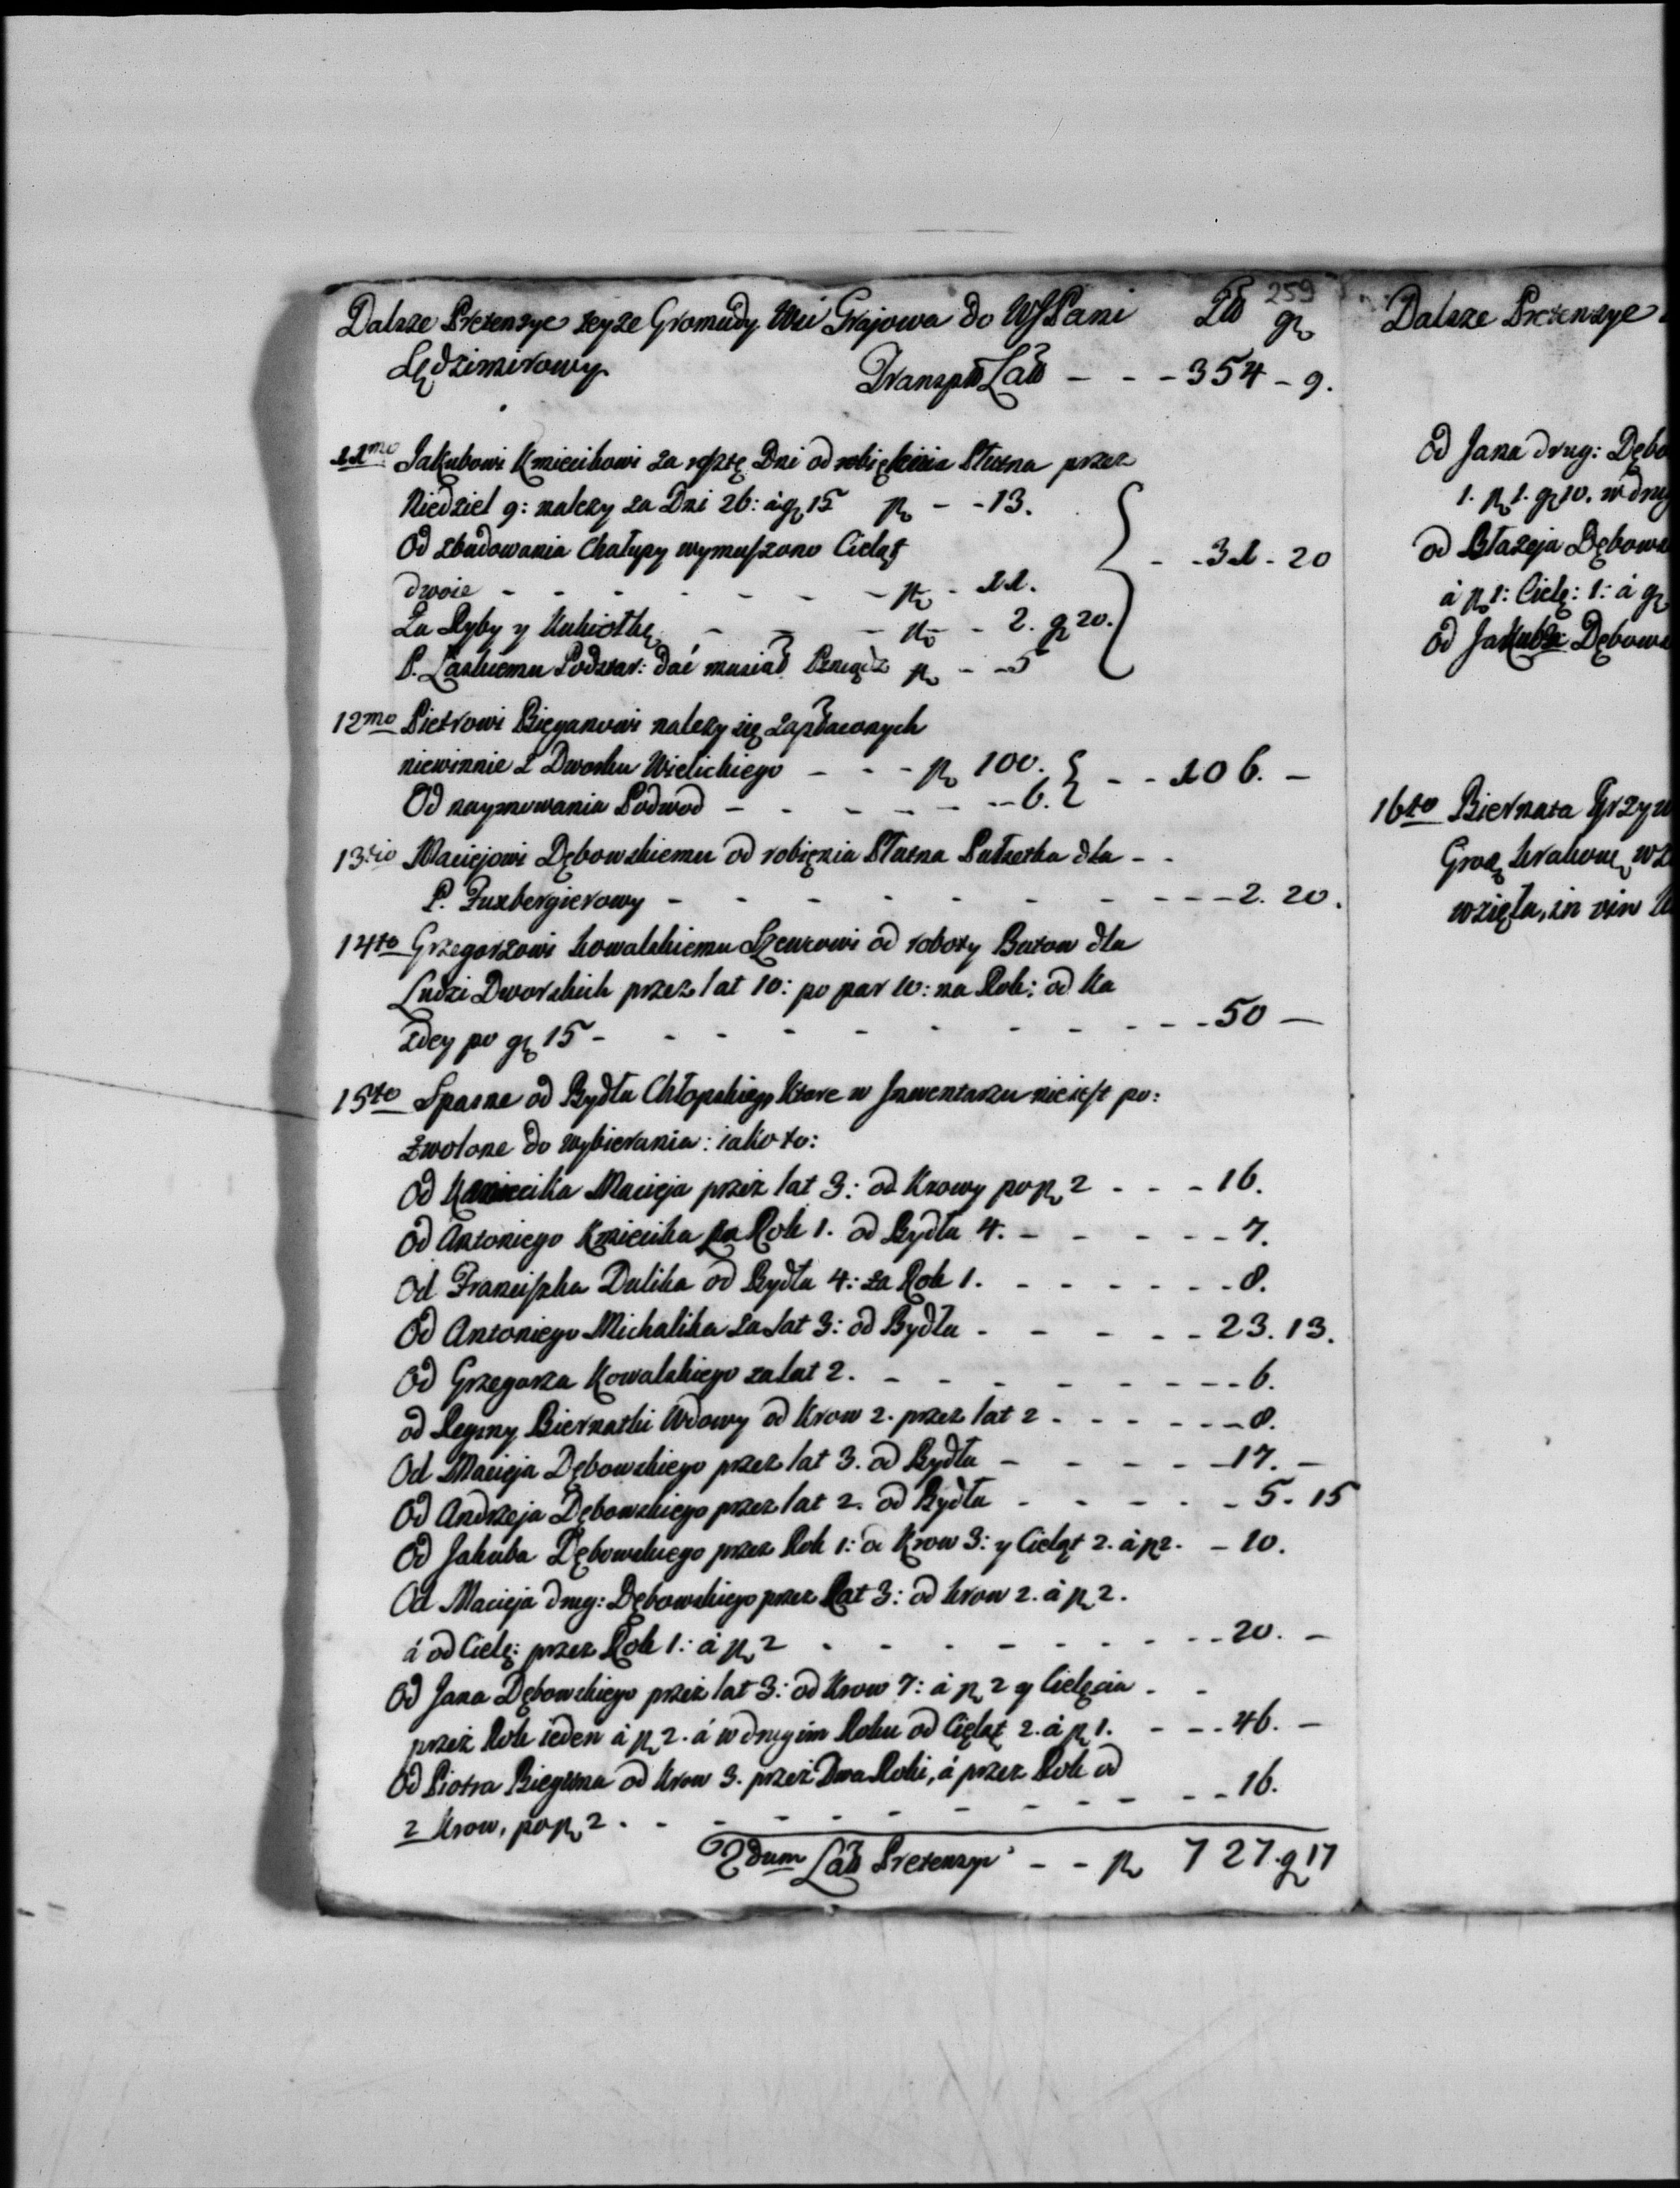 259
Dalsze Pretensye teyze Gromady Wsi Grajowa do WJPani Zło gr
Sędzimirowy Transpt Lat - - - 354 - 9.
11mo Jakubowi Kmiecikowi za resztę Dni od robienia Płutna przez
Niedziel 9: nalezy za Dni 26: à gr 15 p - - 13.
Od zbudowania Chałupy wymuszono Cieląt
dwoie - - - - - - p - 11. - - 31 - 20
Za Ryby y Kukiołkę - - - p - 2. gr 20.
P. Laskiemu Podstar: dać musiał Pieniędz p - - 5
12mo Pietrowi Bieganowi nalezy się zapłaconych
niewinnie z Dworku Wielickiego - - - p 100. - - 106. -
Od naymowania Podwod - - - - - - 6.
13tio Maciejowi Dębowskiemu od robienia Płutna Pułsetka dla - -
P. Fuxbergierowy - - - - - - - - - - 2. 20.
14to Grzegorzowi Kowalskiemu Szewcowi od roboty Butow dla
Ludzi Dworskich przez lat 10: po par 10: na Rok: od Ka
zdey po gr 15 - - - - - - - - - - 50 -
15to Spasne od Bydła Chłopskiego Ktore w Jnwentarzu nie iest po:
zwolone do wybierania: iako to:
Od Kmiecika Macieja przez lat 3: od Krowy po p 2 - - - 16.
Od Antoniego Kmiecika za Rok 1. od Bydła 4. - - - - - 7.
Od Franciszka Dulika od Bydła 4: za Rok 1. - - - - - - 8.
Od Antoniego Michalika za lat 3: od Bydła - - - - - 23. 13.
Od Grzegorza Kowalskiego za lat 2. - - - - - - - - - 6.
od Reginy Biernatki Wdowy od Krow 2. przez lat 2 - - - - - - 8.
Od Macieja Dębowskiego przez lat 3. od Bydła - - - - - 17. -
Od Andrzeja Dębowskiego przez lat 2. od Bydła - - - - - 5. 15
Od Jakuba Dębowskiego przez Rok 1: od Krow 3: y Cieląt 2. à p 2. - 10.
Od Macieja drug: Dębowskiego przez Lat 3: od krow 2. à p 2.
á od Cielę: przez Rok 1: à p 2 - - - - - - - - - 20. -
Od Jana Dębowskiego przez lat 3: od Krow 7: à p 2 y Cielęcia - -
przez Rok ieden à p 2. á w drugim Roku od Cieląt 2. à p 1. - - - 46. -
Od Piotra Biegana od Krow 3. przez Dwa Roki, á przez Rok od
2 Krow, po p 2 - - - - - - - - - - - 16.
Lat Pretensyi - - p 727. gr 17
Dalsze Pretensye
Od Jana drug: Dębo
1. p 1. gr 10. w drug
od Błażeja Dębows
à p 1: Cielę: 1: à gr
Od Jakuba Dębows
16to Biernata Grzyw
wzięła, in vim